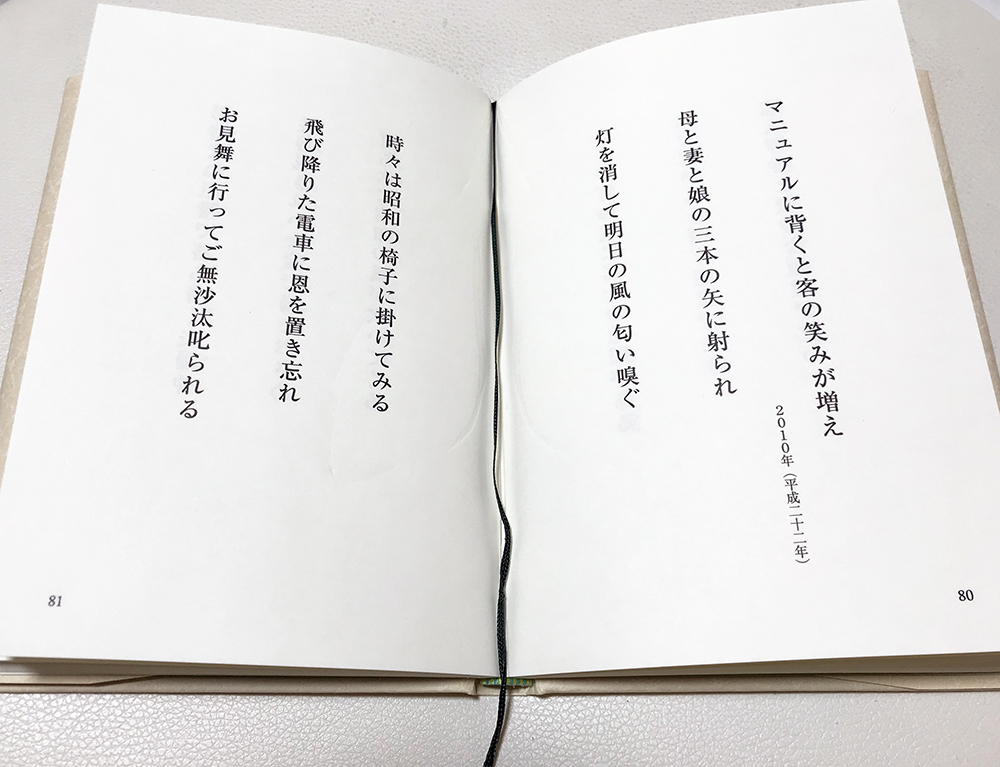 マニュアルに背くと客の笑みが増え
2010年(平成二十二年)
母と妻と娘の三本の矢に射られ
灯を消して明日の風の匂い嗅ぐ
80
時々は昭和の椅子に掛けてみる
飛び降りた電車に恩を置き忘れ
お見舞に行ってご無沙汰叱られる
81